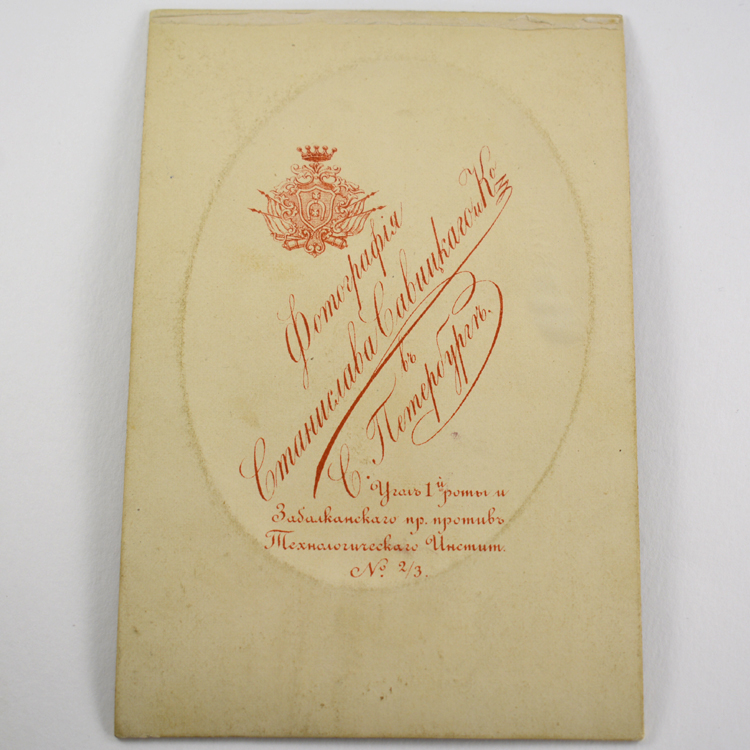 Фотографія
Станислава Савицкаго и Ко
въ
С. Петербургѣ.
Уголъ 1й роты и
Забалканскаго пр. противъ
Технологическаго Инстит.
№ 2/3.